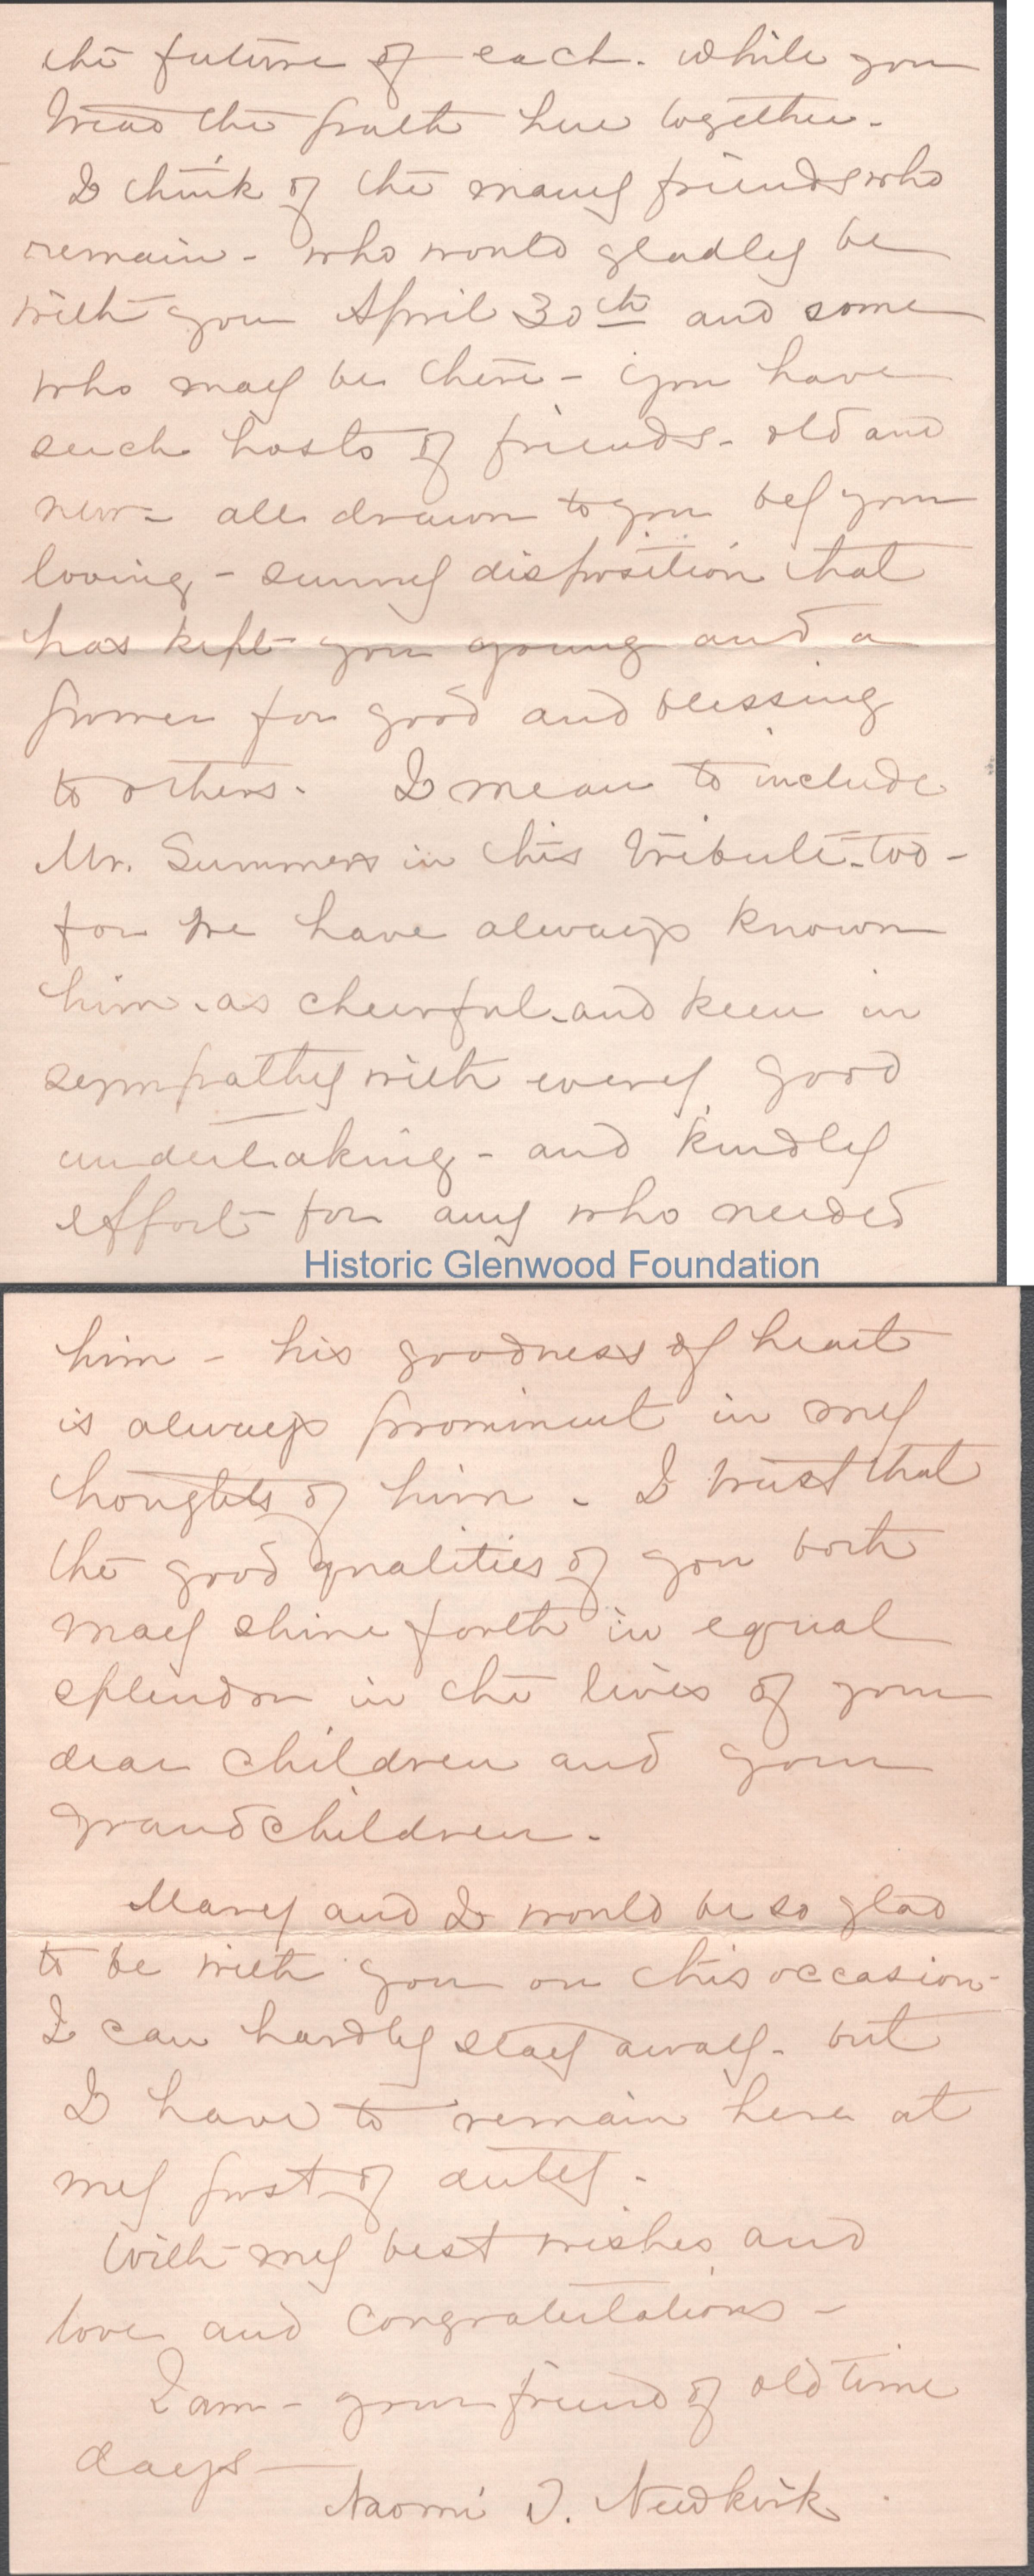 the future of each. while you
tread the path here together.
I think of the many friends who
remain - who would gladly be
with you April 30th and some
who may be there - you have
such hosts of friends - old and
new - all drawn to you by your
loving - sunny disposition that
has kept you young and a
power for good and blessing
to others. I mean to include
Mr. Summers in this tribute - too -
for we have always known
him - as cheerful - and keen in
sympathy with every good
undertaking - and kindly
effort for any who needed
Historic Glenwood Foundation
him - his goodness of heart
is always prominent in my
thoughts of him - I trust that
the good qualities of you both
may shine forth in equal
splendor in the lives of your
dear children and your
grandchildren.
Mary and I would be so glad
to be with you on this occasion -
I can hardly stay away - but
I have to remain here at
my post of duty.
With my best wishes and
love and congratulations -
I am - your friend of old time
days -
Naomi J. Newkirk